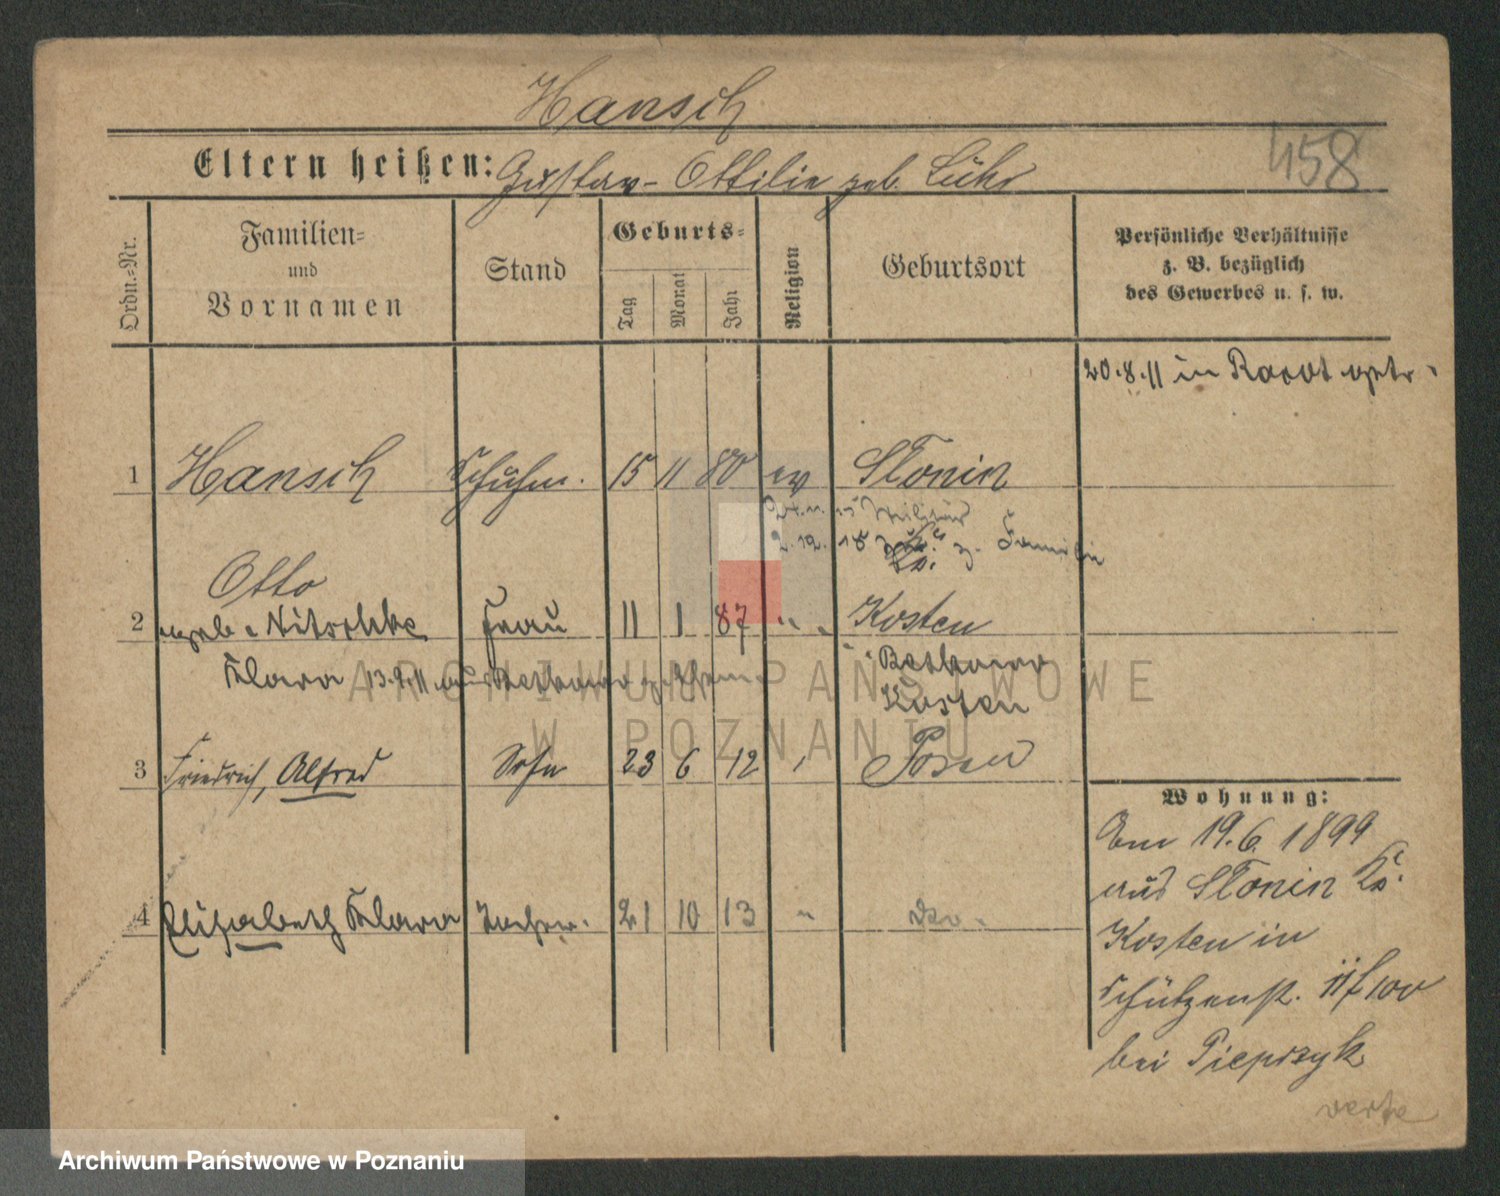 Hansch
458
Eltern heißen: Gustav - Ottilie geb. Lühr
Ordn.-Nr.
Familien-
und
Vornamen
Stand
Geburts-
Tag
Monat
Jahr
Religion
Geburtsort
Persönliche Verhältnisse
z. B. bezüglich
des Gewerbes u. s. w.
20.8.11 in getr.
1 Hansch Schuhm. 15 11 80 ev Słonin
Militär
2.12.18 z. Familie
Otto
2 geb. Nitschke Frau 11 1 87 " Kosten
Klara 13.9.11 aus
Kosten
3 Friedrich, Alfred Sohn 23 6 12 " Posen
Wohnung:
Am 19.6.1899
aus Słonin Ks.
4 Elisabeth Klara Tochter. 21 10 13 " do.
Kosten in
Schützenst.
bei Pieprzyk
verte
ARCHIWUM PAŃSTWOWE
W POZNANIU
Archiwum Państwowe w Poznaniu